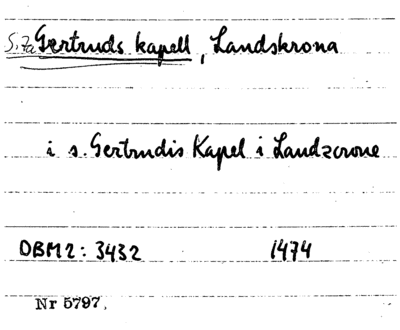 S:ta Gertruds kapell, Landskrona
i s. Gertrudis Kapel i Landzcrone
DBM2: 3432 1474
Nr 5797.